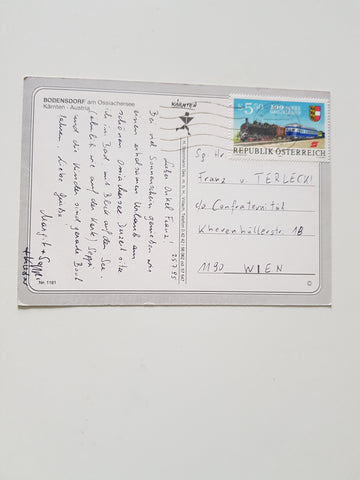 BODENSDORF am Ossiachersee
Kärnten - Austria
25.7.95
Lieber Onkel Franz!
Bei viel Sonnenschein genießen wir
einen erholsamen Urlaub am
schönen Ossiachersee. Derzeit sitze
ich im Bad mit Blick auf den See.
(ähnlich wie auf der Karte) Seppi
und die Kinder sind gerade Boot
fahren. Liebe Grüße
Margit + Seppi
Nr. 1181
KÄRNTEN
5.50
REPUBLIK ÖSTERREICH
Sg. Hr.
Franz v. TERLECKI
c/o Confraternität
Khevenhüllerstr. 18
1190 WIEN
©